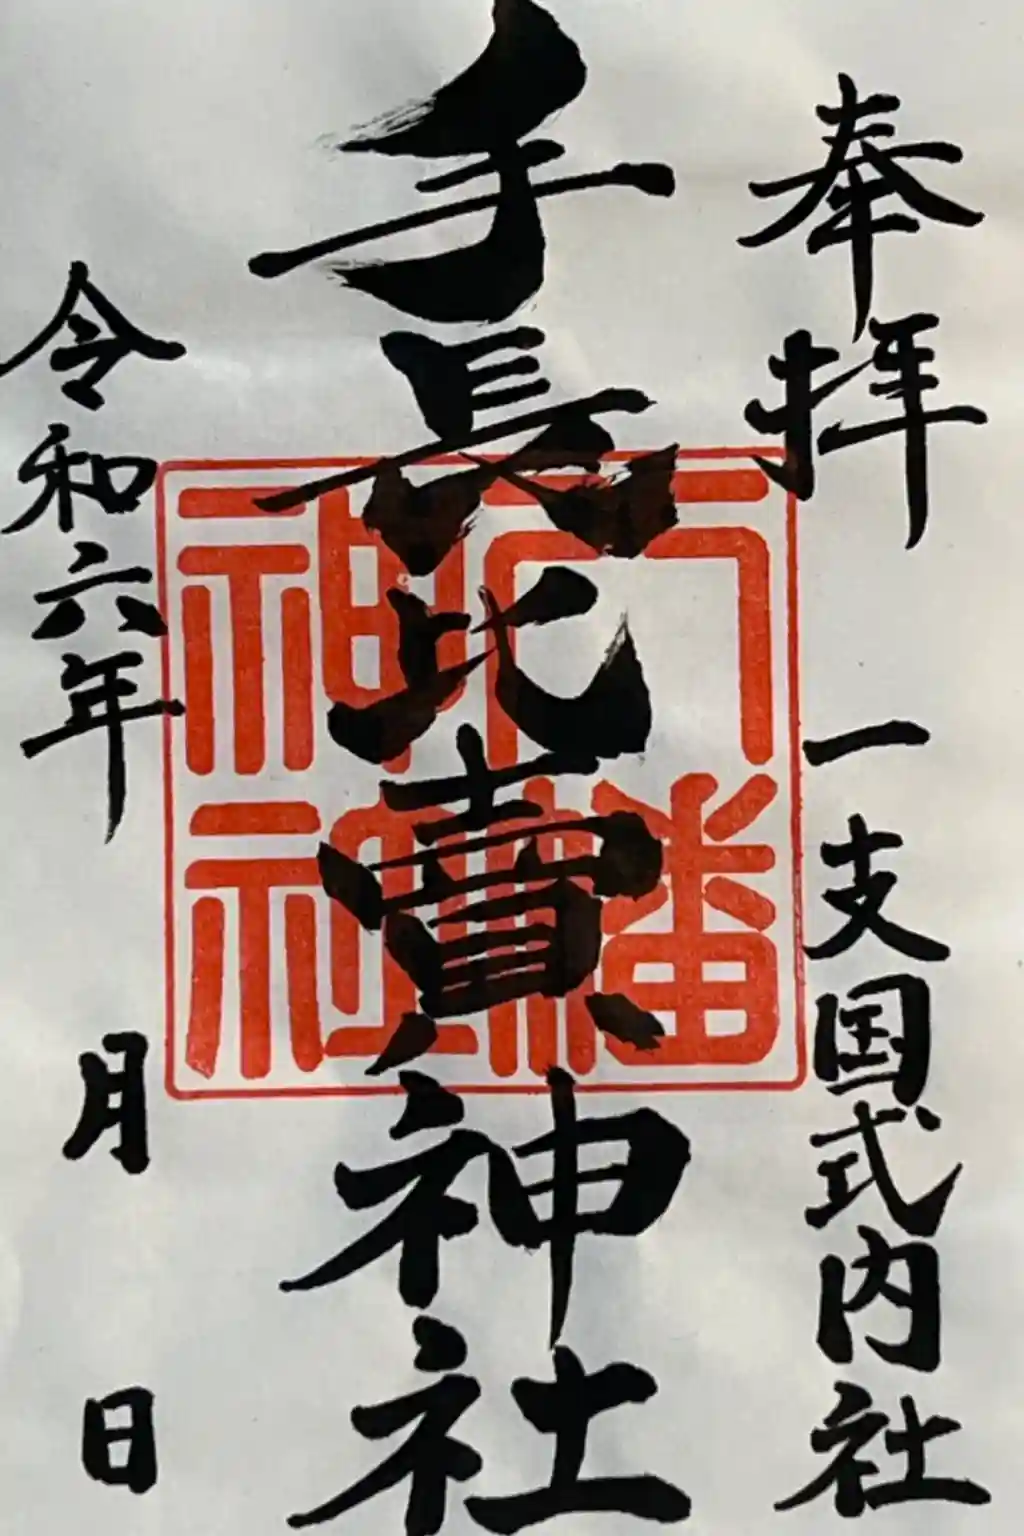 奉拝
一支国式内社
手長比賣神社
令和六年 月 日
八幡神社